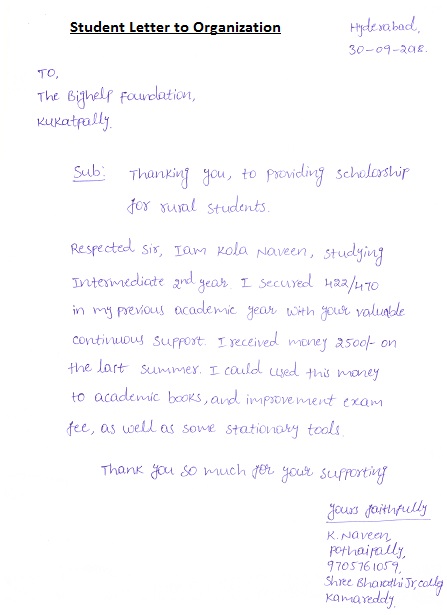 Student Letter to Organization
Hyderabad,
30-09-2018.
TO,
The Bighelp Foundation,
Kukatpally.
Sub: Thanking you, to providing scholarship
for rural students.
Respected Sir, I am Kola Naveen, studying
Intermediate 2nd year. I secured 422/470
in my previous academic year with your valuable
continuous support. I received money 2500/- on
the last summer. I could used this money
to academic books, and improvement exam
fee, as well as some stationary tools.
Thank you so much for your supporting
yours faithfully
K. Naveen
Pothaipally,
9705761059,
Shree Bharathi Jr, collg
Kamareddy.